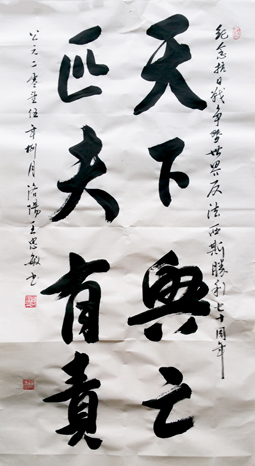 纪念抗日战争暨世界反法西斯胜利七十周年
天下興亡
匹夫有責
公元二零壹伍年捌月洛陽王思敏书